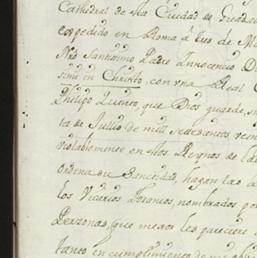 Cathedral de sta Ciudad de Guad
cogedido en Roma á tres de M
Nro Santissimo Padre Innocencio D
simo in Christo, con vna Real C
Phelipe Quinto, que Dios guarde, su
ta de Julio de mill setecientos, vein
violablemente en estos Reynos de la
ordena su Santidad, hagan las
los Vicarios foraneos, nombrados por
Personas, que mexor les pareciere
tanto en cumplimiento de